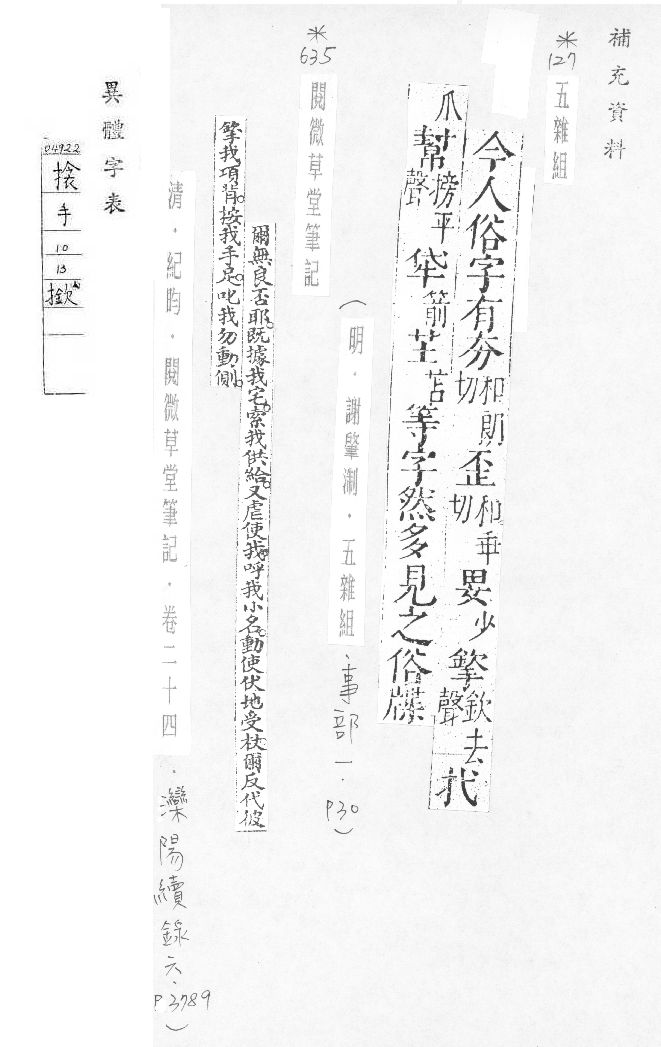 補充資料
*
127
五雜組
今人俗字有夯和朗切歪和乖切㚻少㧢欽去聲找
爪幫榜平聲㡌箭𦬠苫等字然多見之俗牒
*
635
閱微草堂筆記
（明．謝肇淛．五雜組．事部一．P30）
爾無良否耶既據我宅索我供給又虐使我呼我小名動使伏地受杖爾反代彼
我項背按我手足叱我勿動側
清．紀昀．閱微草堂筆記．卷二十四．灤陽續錄六．P3789）
異體字表
04922
手
10
13
揿